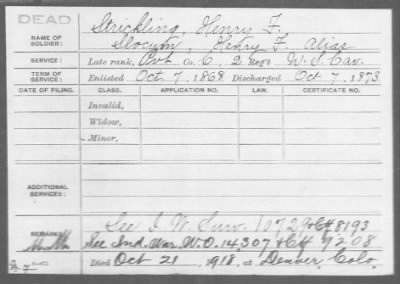 DEAD
NAME OF SOLDIER: Strickling, Henry F.
Slocum, Henry F. Alias
SERVICE: Late rank, Pvt Co. C, 2 Reg't U. S. Cav.
TERM OF SERVICE: Enlisted Oct 7, 1868 Discharged Oct 7, 1873
DATE OF FILING. CLASS. APPLICATION NO. LAW. CERTIFICATE NO.
Invalid,
Widow,
Minor,
ADDITIONAL SERVICES:
See I. W. Surv. 10729 Ctf 8193
REMARKS: See Ind. War. W.O. 14,307 Ctf 9208
Died Oct 21, 1918, at Denver, Colo.